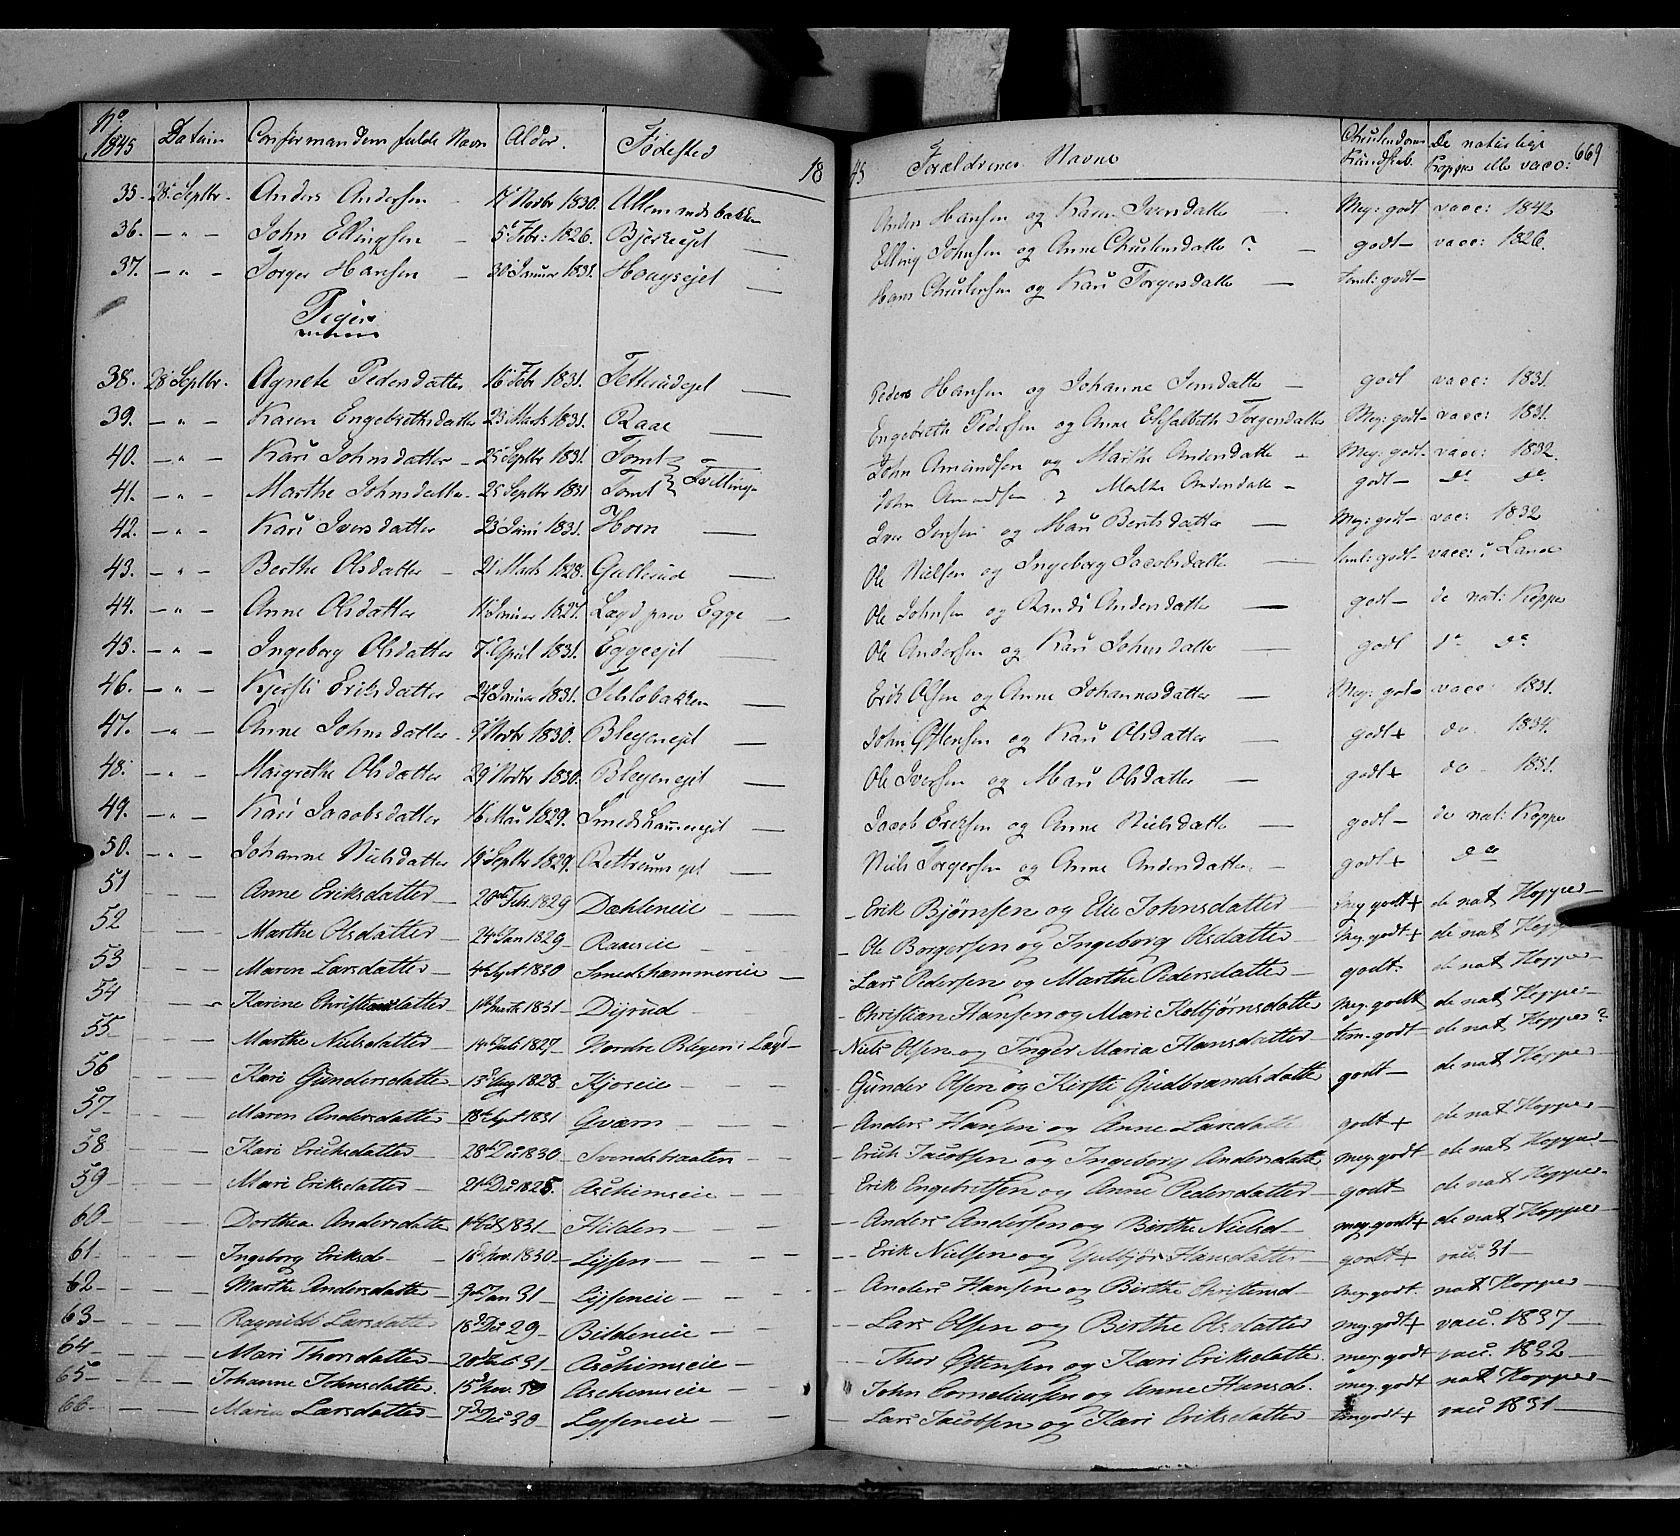 No 1845 Datum Confirmandens fulde Navn Alder. Fødested 18 45 Forældrenes Navne Christendoms Kundskab. De naturlige Kopper eller vacc: 669
35. 28 Septbr. Anders Andersen 17 Novbr 1830. Allemandsbakken Anders Hansen og Karen Iversdatter Meg: godt vacc: 1842
36. — " — John Ellingsen 5 Febr: 1826. Bjerkeejet Elling Johnsen og Anne Christensdatter ? godt — vacc: 1826.
37. — " — Torger Hansen 30 Januar 1831. Houysejet Hans Christensen og Kari Torgersdatter teml: godt —
Piger
38. 28 Septbr. Agnete Pedersdatter 16 Febr 1831. Tetterudejet Peder Hansen og Johanne Jensdatter — godt vacc: 1831.
39. — " — Karen Engebrethsdatter 23 Marts 1831. Raae Engebreth Pedersen og Anne Elisabeth Torgersdatter Meg: godt — vacc: 1831.
40. — " — Kari Johnsdatter 25 Septbr 1831. Tomt John Amundsen og Marthe Andersdatter Meg: godt vacc: 1832.
41. — " — Marthe Johnsdatter 25 Septbr 1831 Tomt Tvillinge John Amundsen og Marthe Andersdatter — godt — do do
42. — " — Kari Iversdatter 23 Juni 1831. Horn Iver Jensen og Mari Berntsdatter Meg: godt — vac: 1832
43. — " — Berthe Olsdatter 21 Marts 1828. Gullerud Ole Nielsen og Ingeborg Jacobsdatter teml: godt — vacc: i Land
44. — " — Anne Olsdatter 11 Januar 1827. Lægd paa Egge Ole Johnsen og Randi Andersdatter godt — de nat: Kopper
45. — " — Ingeborg Olsdatter 7 April 1831. Eggeejet Ole Andersen og Kari Johnsdatter godt do do
46. — " — Kjersti Eriksdatter 24 Januar 1831. Felslobakken Erik Olsen og Anne Johannesdatter Meg: godt vacc: 1831.
47. — " — Anne Johnsdatter 9 Novbr 1830. Blegenejet John Østensen og Kari Olsdatter godt + do. 1834.
48. — " — Margrethe Olsdatter 29 Novbr 1830. Blegenejet Ole Iversen og Mari Olsdatter godt + do 1831.
49. — " — Kari Jacobsdatter 16 Mai 1829. Smedshammerejet Jacob Eriksen og Anne Nielsdatter godt — de nat: Kopper
50. — " — Johanne Nielsdatter 15 Septbr 1829. Rettrumsejet Niels Torgersen og Anne Andersdatter. godt + do
51 Anne Eriksdatter 20de Feb. 1829 Dæhleneie Erik Bjørnsen og Elie Johnsdatter meg godt + de nat Kopper
52 Marthe Olsdatter 24 Jan 1829 Raaeseie Ole Borgersen og Ingeborg Olsdatter Meg. godt + de nat Kopper
53 Maren Larsdatter 4de Sept 1830 Smedshammereie Lars Pedersen og Marthe Pedersdatter godt. de nat Kopper
54 Karine Christiansdatter 1ste Marts 1831 Dijrud Christian Hansen og Mari Kolbjørnsdatter meg. godt de nat Kopper
55 Marthe Nielsdatter 14de Feb 1827 Nordre Blegen i Lægd Niels Olsen og Inger Maria Hansdatter tem. godt de nat Kopper?
56 Kari Gundersdatter 13de Aug 1828. Kjoseie Gunder Olsen og Kirsti Gudbrandsdatter godt — de nat Kopper
57 Maren Andersdatter 18de Sept 1831 Gværn Anders Hansen og Anne Larsdatter godt + de nat Kopper
58 Kari Eriksdatter 28de Dec 1830 Svendebraaten Erik Jacobsen og Ingeborg Andersdatter meg. godt de nat Kopper
59 Mari Eriksdatter 21de Dec 1825. Aschimseie Erik Engebritsen og Anne Pedersdatter godt de nat Kopper
60 Dorthea Andersdatter 1831 Hilden Anders Andersen og Berthe Nielsd meg. godt + de nat Kopper
61 Ingeborg Eriksd 16de Nov. 1830 Lijsen Erik Nielsen og Gulbjør Hansdatter godt + vacc. 31
62 Marthe Andersdatter 3de Jan 31 Lijseneie Anders Hansen og Birthe Christensd meg. godt. nat Kopper
63 Ragnild Larsdatter 18de Dec 29 Bildeneie Lars Olsen og Birthe Olsdatter meg. godt + vacc. 1837
64 Mari Thorsdatter 20de Feb 31 Aschimseie Thor Østensen og Kari Eriksdatter. meg. godt vacc. 1832
65 Johanne Johnsdatter. 15de Nov. 30 Aschimseie John Corneliussen og Anne Hansd. meg. godt nat Kopper
66 Maria Larsdatter 7de Dec 30 Lijseneie Lars Jacobsen og Kari Eriksdatter tem godt + vacc 1831